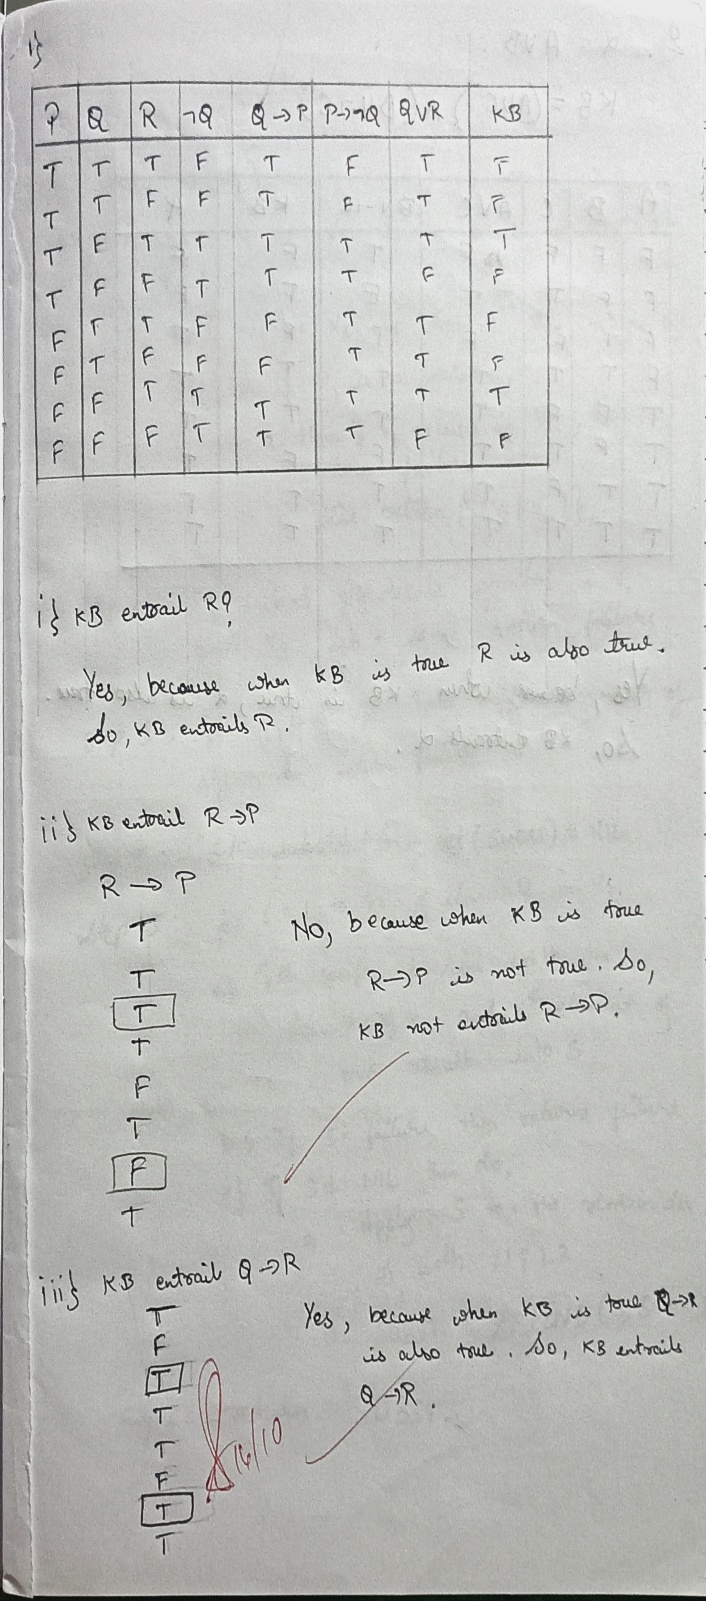 1}
P Q R ¬Q Q→P P→¬Q QVR KB
T T T F T F T F
T T F F T F T F
T F T T T T T T
T F F T T T F F
F T T F F T T F
F T F F F T T F
F F T T T T T T
F F F T T T F F
i} KB entrail R?
Yes, because when KB is true R is also true.
So, KB entrails R.
ii} KB entrail R→P
R → P
T
T
T
T
F
T
F
T
No, because when KB is true
R→P is not true. So,
KB not entrails R→P.
iii} KB entrail Q→R
T
F
T
T
T
F
T
T
Yes, because when KB is true Q→R
is also true. So, KB entrails
Q→R.
16/10